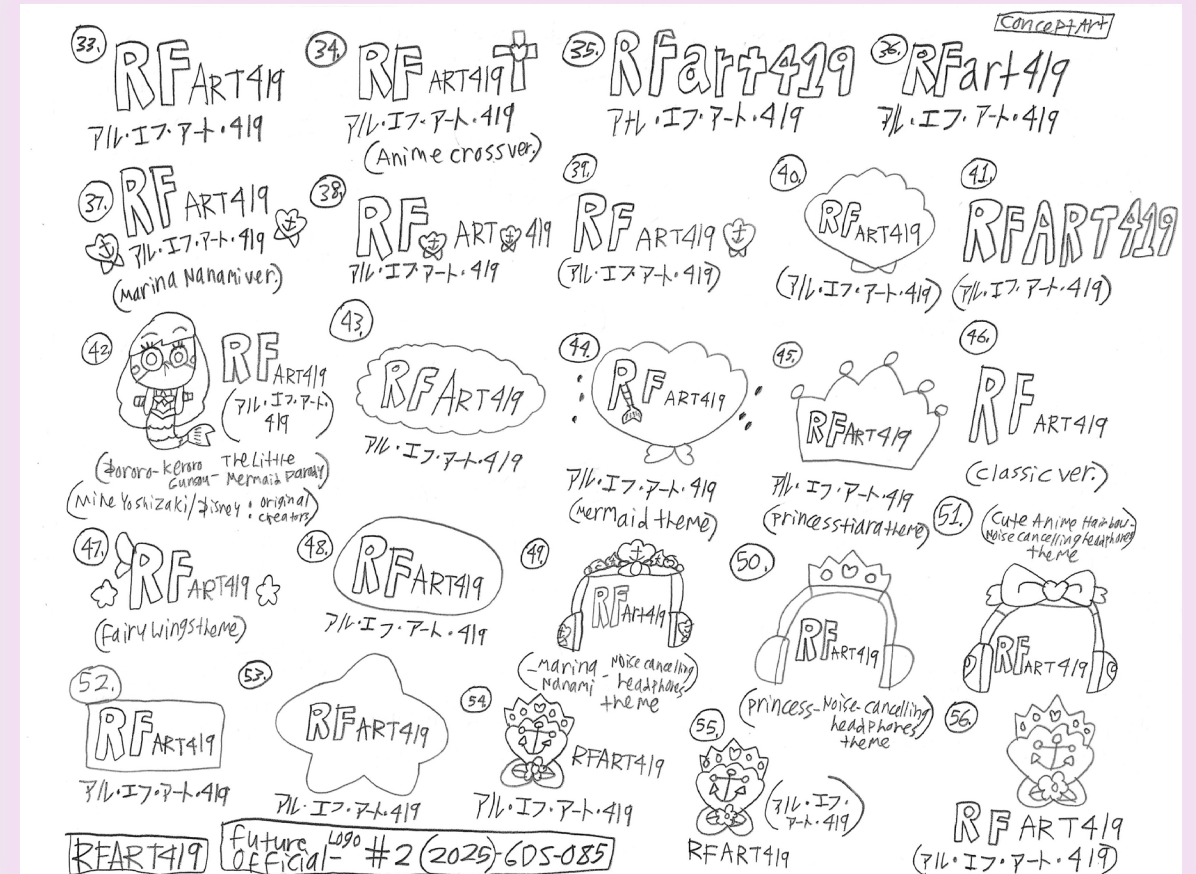 Concept Art
33.
RF ART419
アル・エフ・アート・419
34.
RF ART419
アル・エフ・アート・419
(Anime cross ver.)
35.
RFart419
アル・エフ・アート・419
36.
RFart419
アル・エフ・アート・419
37.
RF ART419
アル・エフ・アート・419
(Marina Nanami ver.)
38.
RF ART 419
アル・エフ・アート・419
39.
RF ART419
(アル・エフ・アート・419)
40.
RF ART419
(アル・エフ・アート・419)
41.
RFART419
(アル・エフ・アート・419)
42.
RF ART419
(アル・エフ・アート・
419)
(Dororo-Keroro
Gunsou-
The Little
Mermaid Parody)
(Mine Yoshizaki/Disney: original
creators)
43.
RFART419
アル・エフ・アート・419
44.
RF ART419
アル・エフ・アート・419
(Mermaid theme)
45.
RFART419
アル・エフ・アート・419
(princess tiara theme)
46.
RF ART419
(classic ver.)
47.
RF ART419
(Fairy wings theme)
48.
RFART419
アル・エフ・アート・419
49.
RF Art419
(-Marina
Nanami-
Noise cancelling
headphones
theme)
50.
RFART419
(princess-Noise-cancelling
headphones
theme)
51.
(Cute Anime Hairbow-
Noise cancelling headphones
theme)
RFART419
52.
RF ART419
アル・エフ・アート・419
53.
RFART419
アル・エフ・アート・419
54.
RFART419
アル・エフ・アート・419
55.
(アル・エフ・
アート・419)
RFART419
56.
RF ART419
(アル・エフ・アート・419)
RFART419
Future Logo
Official- #2 (2025)-GDS-085